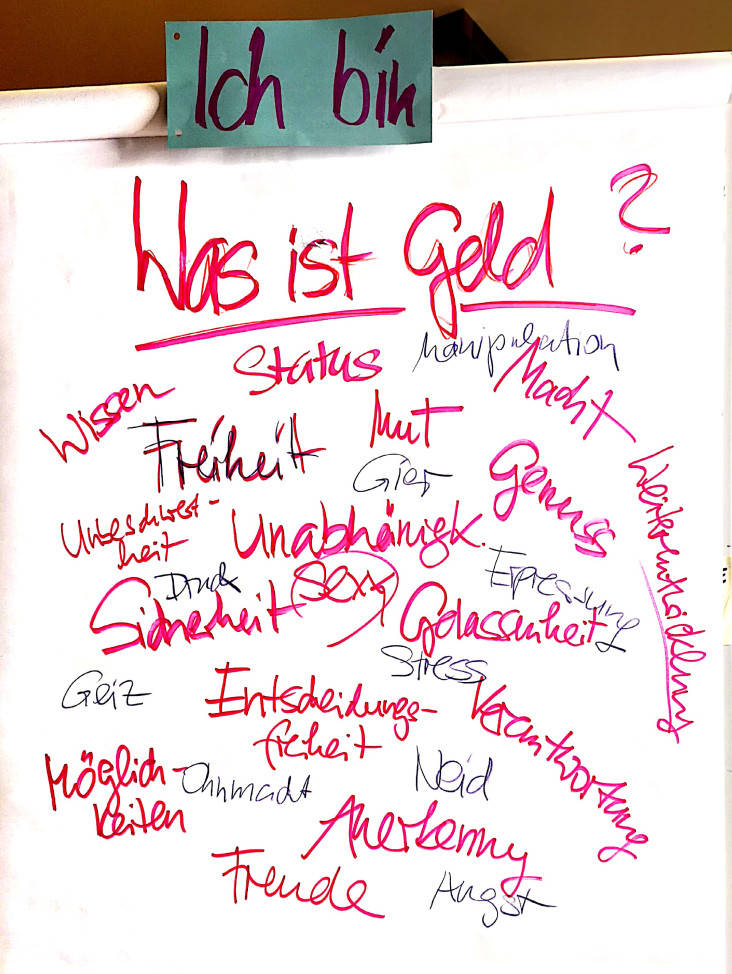 Ich bin
Was ist Geld?
Status
Manipulation
Wissen
Macht
Freiheit
Mut
Gier
Genuss
Weiterentwicklung
Unbeschwert-
heit
Unabhänigk.
Druck
sexy
Erpressung
Sicherheit
Gelassenheit
Stress
Geiz
Entscheidungs-
freiheit
Verantwortung
Möglich-
keiten
Ohnmacht
Neid
Anerkennung
Freude
Angst